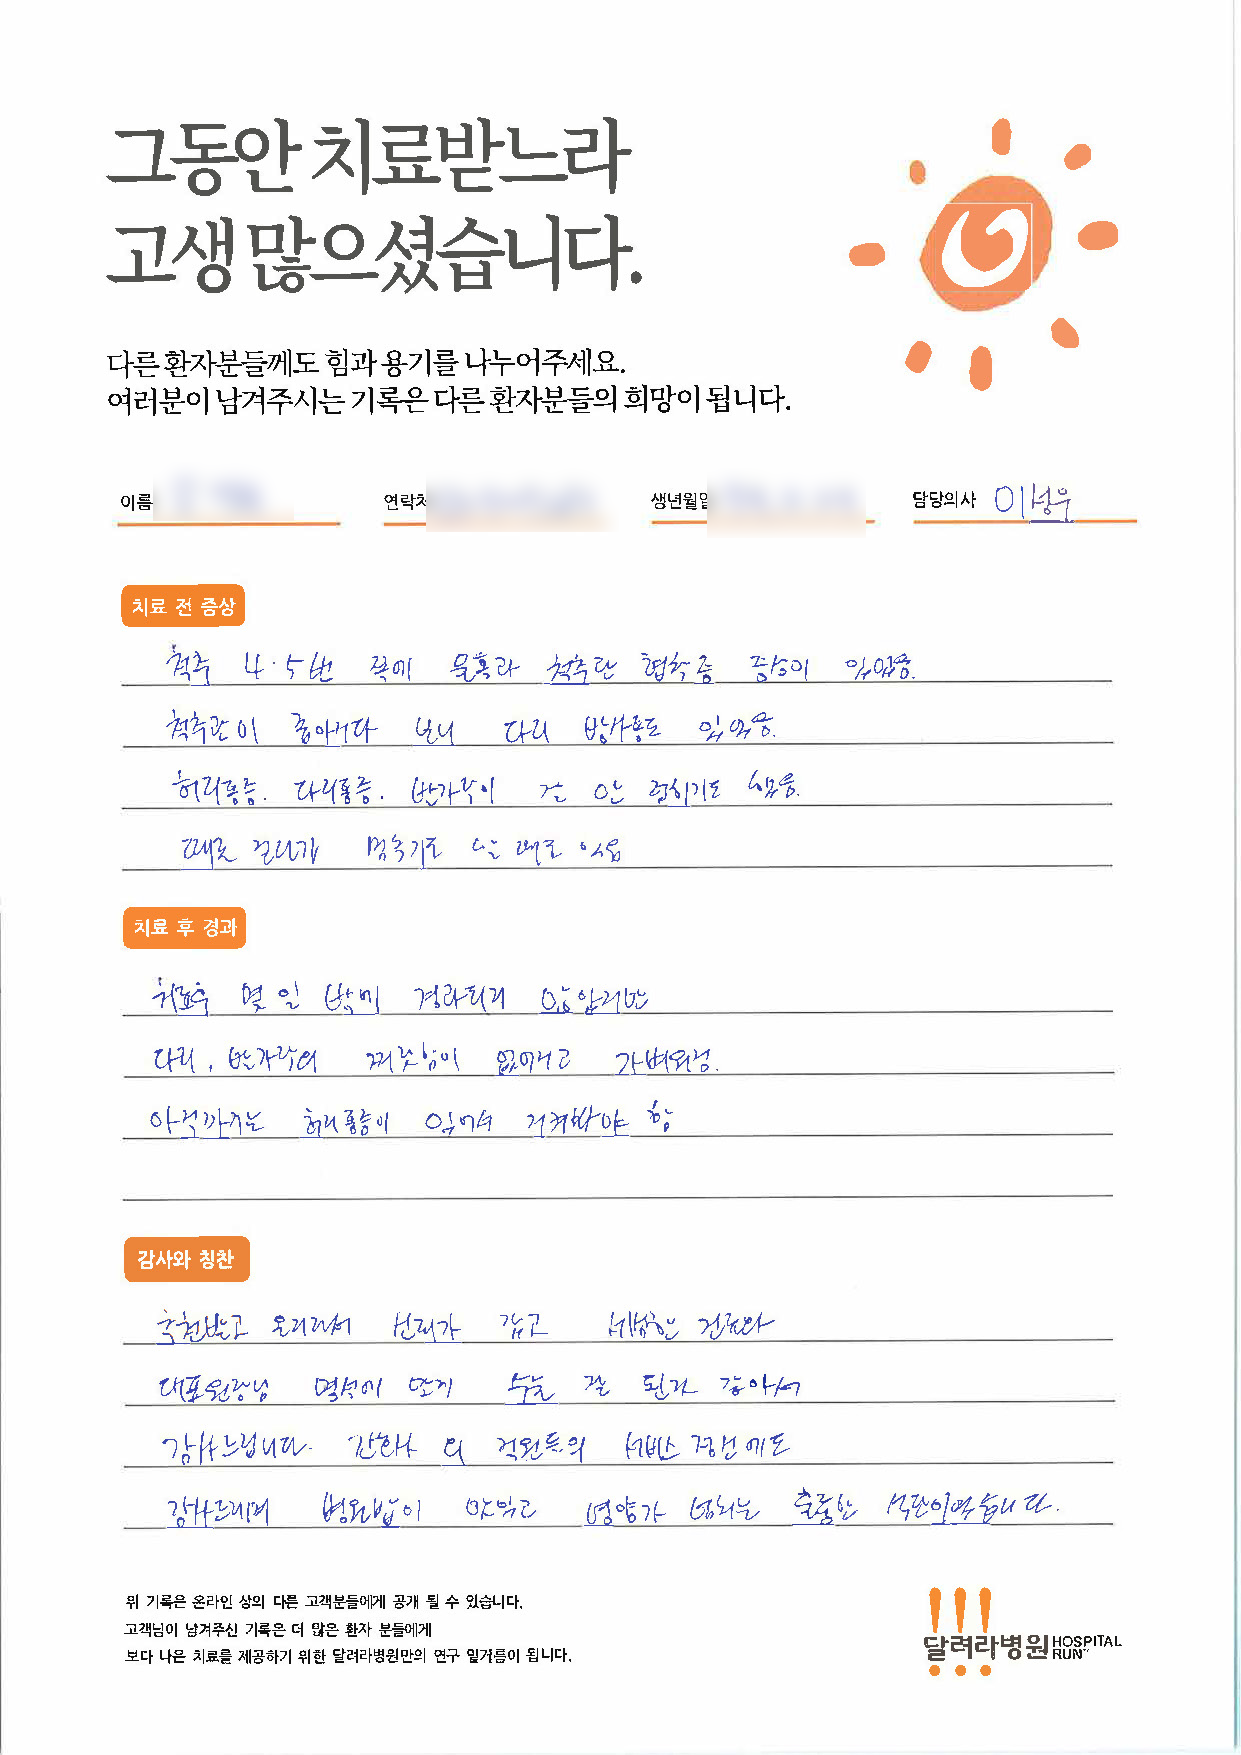 그동안 치료받느라
고생 많으셨습니다.
다른 환자분들께도 힘과 용기를 나누어주세요.
여러분이 남겨주시는 기록은 다른 환자분들의 희망이 됩니다.
이름 연락처 생년월일 담당의사 이성우
치료 전 증상
척추 4·5번 쪽에 물혹과 척추관 협착증 증상이 있었음.
척추관이 좁아져다 보니 다리 방사통도 있었음.
허리통증. 다리통증. 발가락이 잘 안 펼치기도 했음.
때로 걷다가 멈추기도 할 때도 있음
치료 후 경과
치료후 몇 일 밖에 경과되지 않았지만
다리, 발가락의 찌릿함이 없어지고 가벼워짐.
아직까지는 허리통증이 있어서 지켜봐야 함
감사와 칭찬
추천받고 오리라서 신뢰가 갔고 세심한 진료와
대표원장님 덕분에 만기 수술 잘 된것 같아서
감사드립니다. 간호사 외 직원들의 서비스 정신에도
감사드리며 병원밥이 맛있고 영양가 넘치는 훌륭한 식단이었습니다.
위 기록은 온라인 상의 다른 고객분들에게 공개 될 수 있습니다.
고객님이 남겨주신 기록은 더 많은 환자 분들에게
보다 나은 치료를 제공하기 위한 달려라병원만의 연구 밑거름이 됩니다.
달려라병원 HOSPITAL RUN